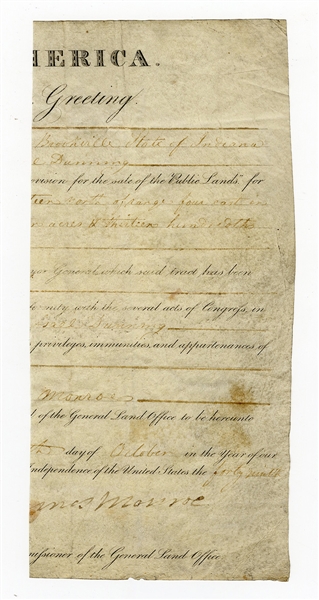 MERICA.
Greeting.
Brookville State of Indiana
Dunning
provision for the sale of the Public Lands for
teen north of range four east in
acres & thirteen hundredths
yor General, which said Tract has been
formity with the several acts of Congress, in
Dunning
privileges, immunities, and appurtenances, of
Monroe
l of the General Land Office to be hereunto
day of October in the Year of our
Independence of the United States the forty seventh
James Monroe
missioner of the General Land Office